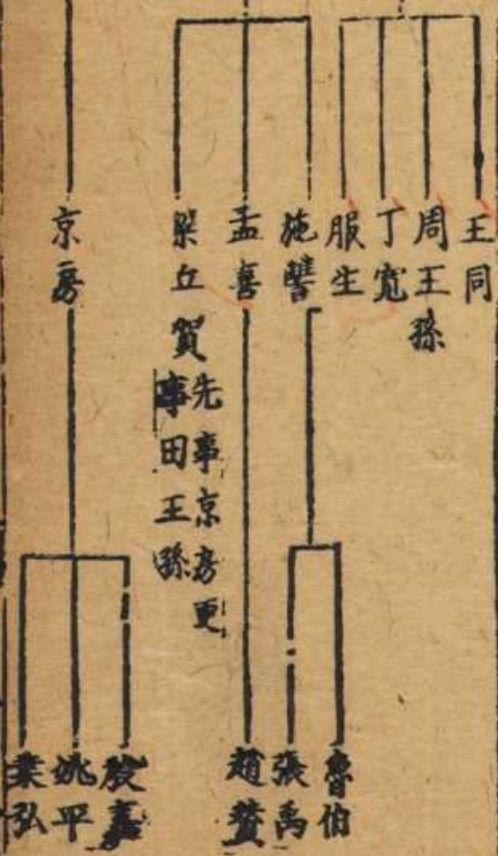 王同
周王孫
丁寬
服生
施讐
孟喜
梁丘賀
先事京房更
事田王孫
京房
魯伯
張禹
趙
殷嘉
姚平
弘